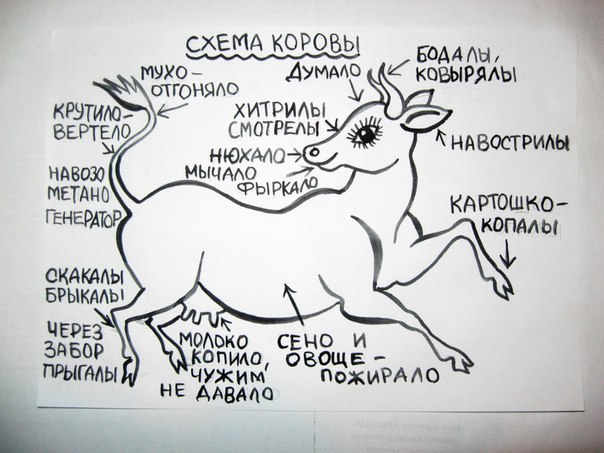 СХЕМА КОРОВЫ
МУХО-
ОТГОНЯЛО
ДУМАЛО
БОДАЛЫ,
КОВЫРЯЛЫ
КРУТИЛО-
ВЕРТЕЛО
ХИТРИЛЫ
СМОТРЕЛЫ
НАВОСТРИЛЫ
НЮХАЛО
МЫЧАЛО
ФЫРКАЛО
НАВОЗО
МЕТАНО
ГЕНЕРАТОР
КАРТОШКО-
КОПАЛЫ
СКАКАЛЫ
БРЫКАЛЫ
ЧЕРЕЗ
ЗАБОР
ПРЫГАЛЫ
МОЛОКО
КОПИЛО,
ЧУЖИМ
НЕ ДАВАЛО
СЕНО И
ОВОЩЕ-
ПОЖИРАЛО